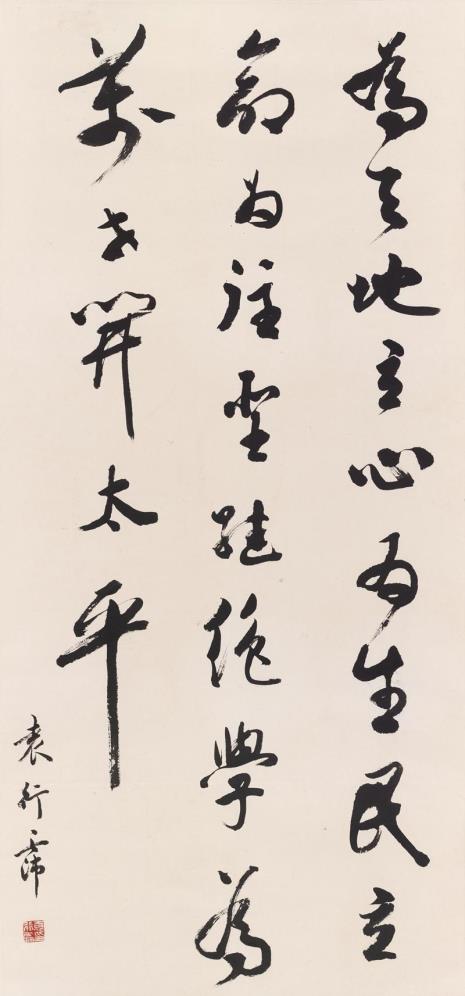 為天地立心为生民立
命为往聖繼絕學為
萬世開太平
袁行霈